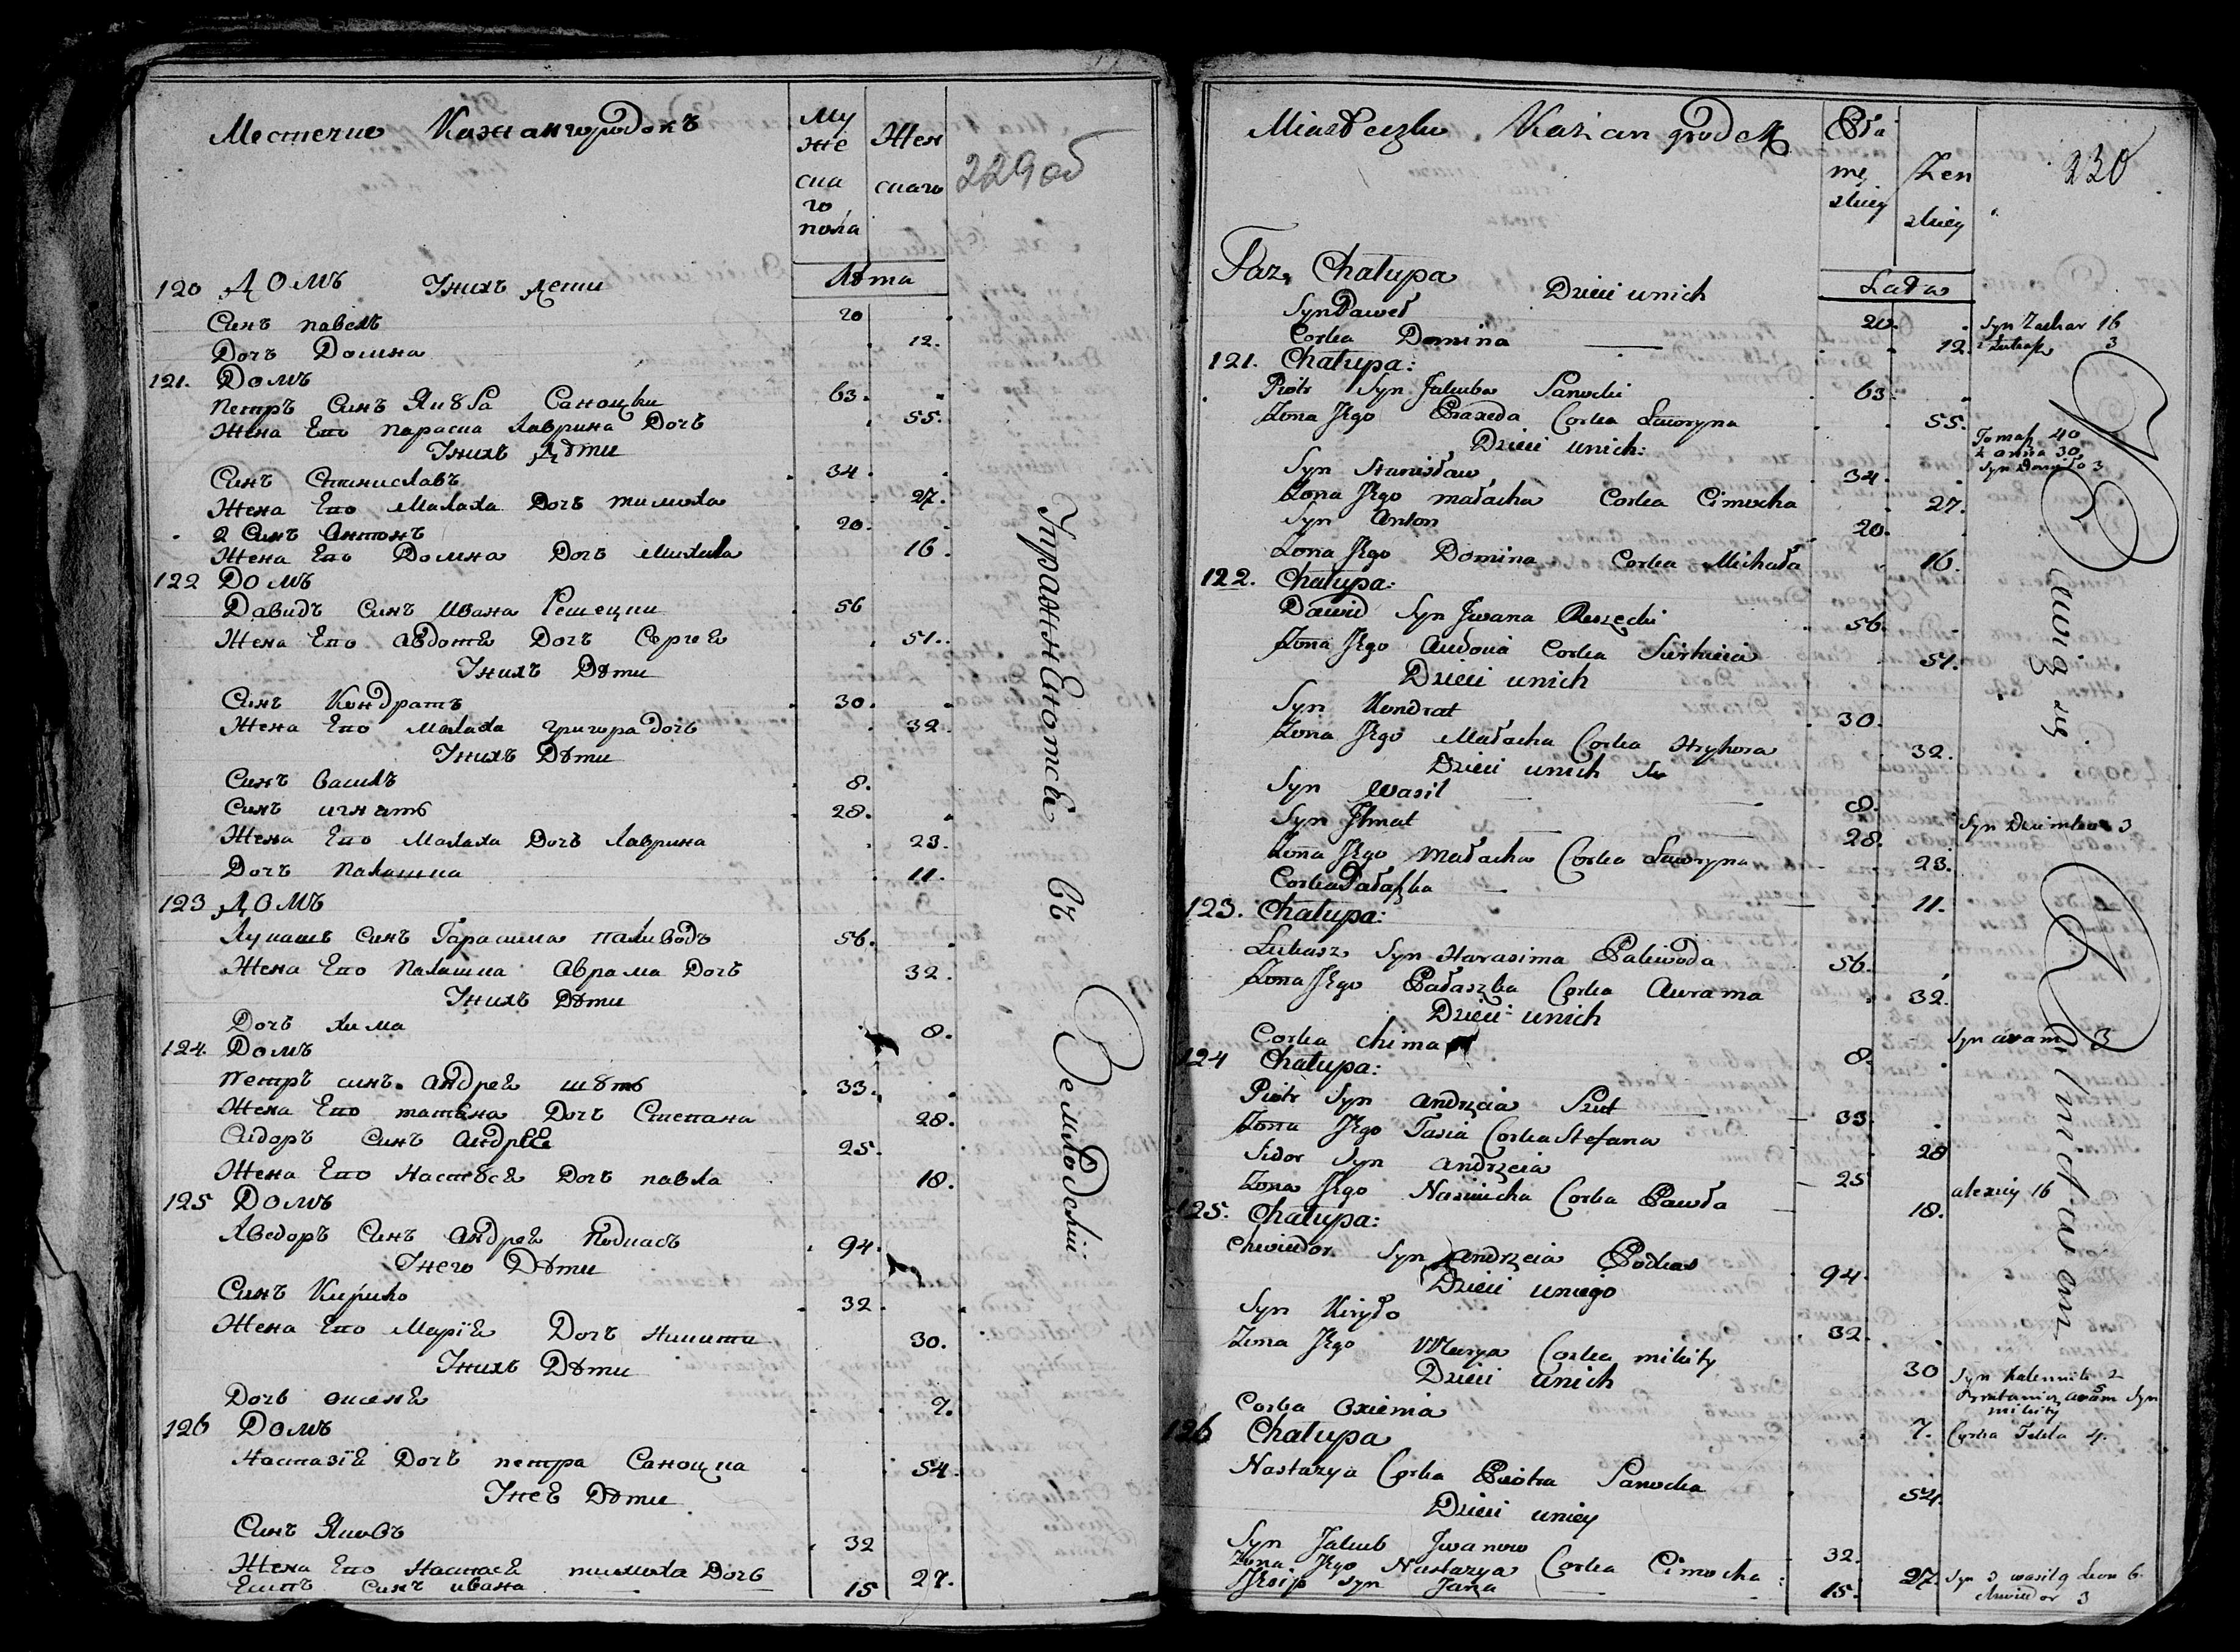 Местечко Кажангородокъ
Му
же
ска
го
пола
Жен
скаго
229об
Лѣта
120 Домъ Унихъ дети
Синъ павелъ 20
Дочъ Домна 12.
121. Домъ
Петръ Синъ Якуба Саноцки 63.
Жена Его Параска Лаврина Дочъ 55.
Унихъ Дѣти
Синъ Станиславъ 34.
Жена Его Малаха Дочъ тимоха 27.
2 Синъ Антонъ 20.
Жена Его Домна Дочъ Михала 16.
122 Домъ
Давидъ Синъ Ивана Решецки 56
Жена Его Авдотя Дочъ Сергея 51.
Унихъ Дѣти
Синъ Кондратъ 30.
Жена Его Малаха григора дочъ 32
Унихъ Дѣти
Синъ Василъ 8.
Синъ игнатъ 28.
Жена Его Малаха Дочъ Лаврина 23.
Дочъ Палашка 11.
123 Домъ
Лукашъ Синъ Гарасима паливода 56.
Жена Его Палашка Аврама Дочъ 32.
Унихъ Дѣти
Дочъ хима 8.
124. Домъ
Петръ синъ Андрея шутъ 33.
Жена Его татяна Дочъ Степана 28.
Сидоръ Синъ Андрея 25.
Жена Его Настася Дочъ павла 18.
125 Домъ
Хведоръ Синъ Андрея Подкасъ 94.
Унего Дѣти
Синъ Кирило 32
Жена Его Марія Дочъ Никити 30.
Унихъ Дѣти
Дочъ оксеня 7.
126 Домъ
Настазія Дочъ петра Саноцка 54.
Унея Дѣти
Синъ Яковъ 32
Жена Его Настася тимоха Дочъ 27.
Есипъ Синъ ивана 15
въ Земловскій
Miasteczko Kazian grodek
Płci
mę
skiey
Żen
skiey
230
Lata
Chałupa Dzieci unich
Syn Paweł 20. Syn Zachar 16
Corka Domina 12. 3
121. Chałupa:
Piotr Syn Jakuba Sanocki 63.
Żona Jego Praxeda Corka Ławryna 55.
Dzieci unich: Tomasz 40
ż anna 30
Syn Daniło 3
Syn Stanisław 34.
Żona Jego małacha Corka Cimocha 27.
Syn Anton 20.
Żona Jego Domina Corka Michała 16.
122. Chałupa:
Dawid Syn Jwana Reszecki 56.
Żona Jego Audocia Corka Sierhieia 51.
Dzieci unich
Syn Kondrat 30.
Żona Jego Małacha Corka Hryhora 32.
Dzieci unich
Syn Wasil 8.
Syn Jhnat 28. Syn 3
Żona Jego Małacha Corka Ławryna 23.
Corka Pałaszka 11.
123. Chałupa:
Łukasz Syn Harasima Paliwoda 56.
Żona Jego Pałaszka Corka Awrama 32.
Dzieci unich
Corka chima 8. Syn avram 3
124 Chałupa:
Piotr Syn andrzeia Szut 33.
Żona Jego Tasia Corka Stefana 28
Sidor Syn andrzeia 25
Żona Jego Nascicha Corka Pawła 18. alexiey 16
125. Chałupa:
Chwiedor Syn andrzeia Podkas 94.
Dzieci uniego
Syn Kiryło 32.
Żona Jego Marya Corka mikity 30 Syn 2
Dzieci unich avram Syn
mikity
Corka oxienia 7. Corka Tekla 4.
126 Chałupa
Nastazya Corka Piotra Sanocka 54.
Dzieci uniey
Syn Jakub Jwanow 32.
Żona Jego Nastazya Corka Cimocha 27. Syn 3 wasil 9 Leon 6.
Jozip syn Jana 15. chwiedor 3